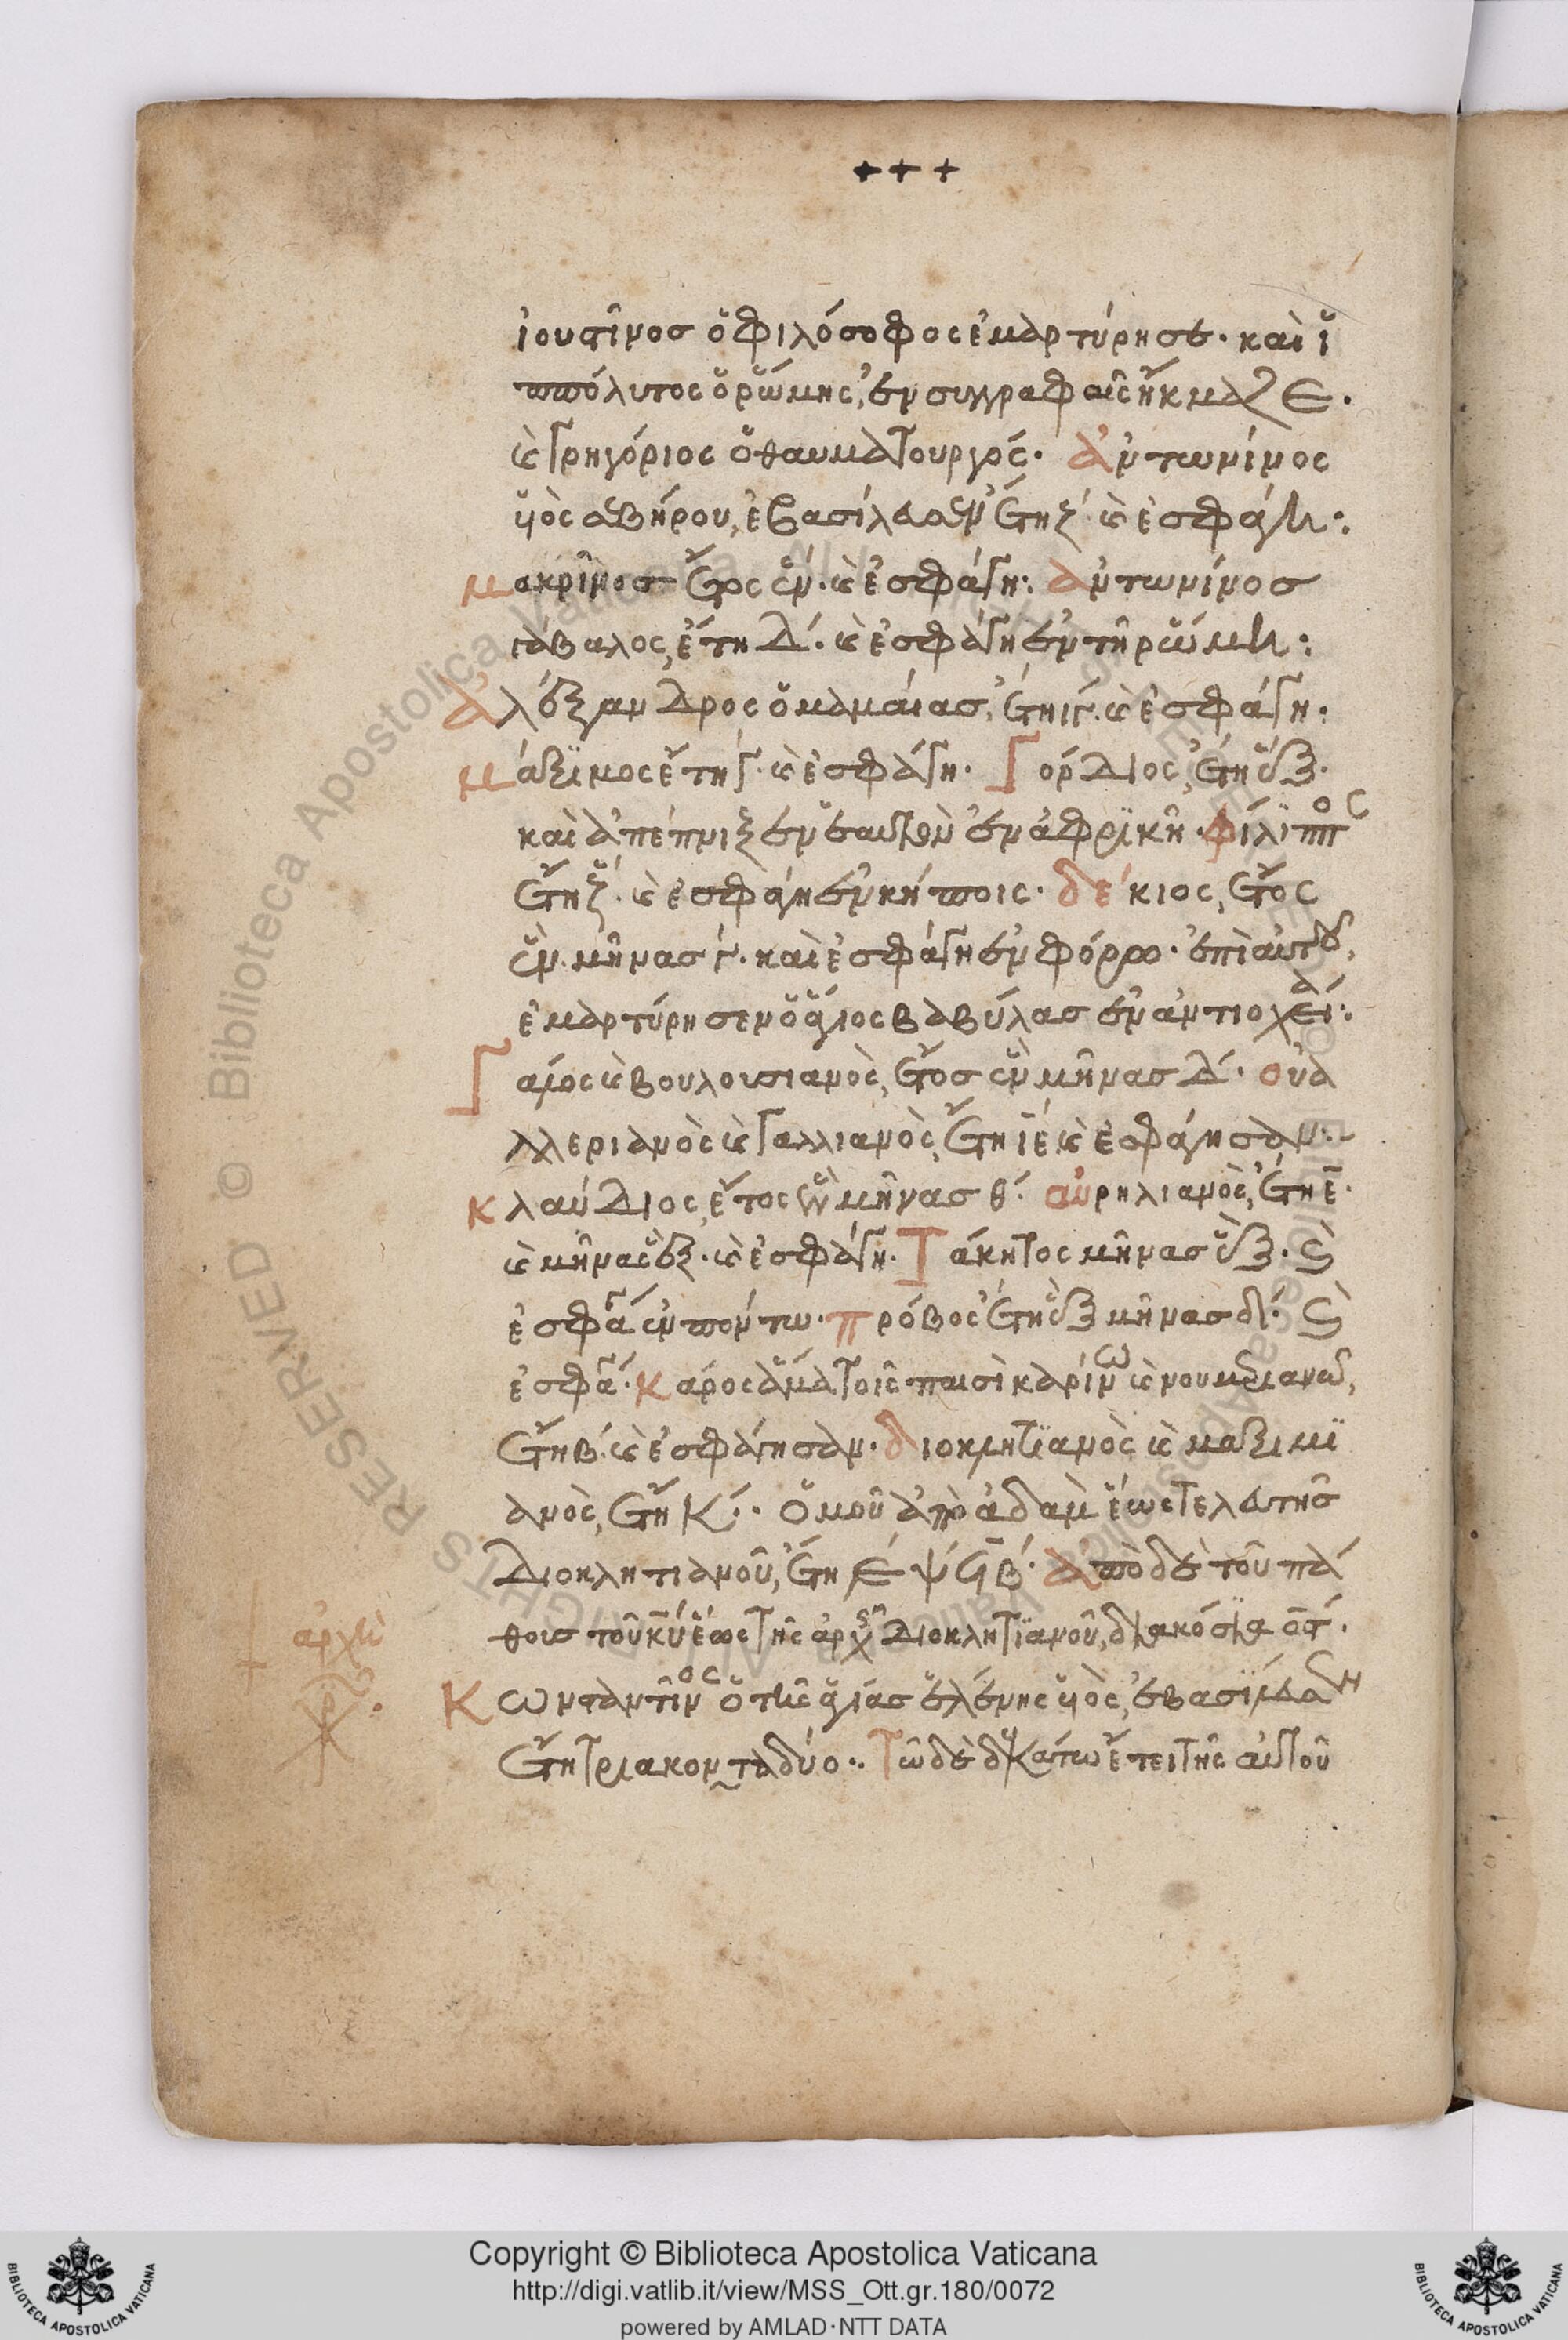 + + +
ἰουστῖνος ὁ φιλόσοφος ἐμαρτύρησε· καὶ ἱ
ππόλυτος ὁ ῥώμης, ἐν συγγραφαῖς ἤκμαζε.
καὶ γρηγόριος ὁ θαυματουργός· ἀντωνίνος
υἱὸς σεβήρου, ἐβασίλευσεν ἔτη ζ´· καὶ ἐσφάγη:
μακρῖνος ἔτος ἕν· καὶ ἐσφάγη: ἀντωνίνος
γάβαλος, ἔτη δ´. καὶ ἐσφάγη ἐν τῇ ῥώμη:
ἀλέξανδρος ὁ μαμαίας, ἔτη ιγ· καὶ ἐσφάγη:
μάξιμος ἔτη γ· καὶ ἐσφάγη. γορδιος, ἔτη ἕξ.
καὶ ἀπέπνιξεν ἑαυτὸν ἐν ἀφρϊκῆ· φίλϊππος
ἔτη ζ´. καὶ ἐσφάγη ἐν κήποις. δέκιος, ἔτος
ἓν μῆνας γ. καὶ ἐσφάγη ἐν φόρρο· ἐπὶ αὐτοῦ,
ἐμαρτύρησεν ὁ ἅγιος βαβύλας ἐν ἀντιοχεία:
γαίος καὶ βουλουσιανὸς, ἔτος ἓν μῆνας δ´. οὐα
λλεριανὸς καὶ γαλλιανὸς, ἔτη ιε´ καὶ ἐσφάγησαν:
κλαύδιος, ἔτος ἓν μῆνας θ´. αὐρηλιανὸς, ἔτη ε.
καὶ μῆνας ἕξ. καὶ ἐσφάγη. Τάκητος μῆνας ἕξ. καὶ
ἐσφάγη ἐν πόντω. πρόβος ἔτη ἓξ μῆνας δ´. καὶ
ἐσφάγη. κάρος ἅμα τοῖς παισὶ καρίνω καὶ νουμεριανῶ,
ἔτη β´. καὶ ἐσφάγησαν. διοκλητϊανὸς καὶ μαξιμϊ
ανὸς, ἔτη κ´. ὁμοῦ ἀπὸ ἀδαμ ἕως τελευτῆς
Διοκλητιανοῦ, ἔτη εψϟβ´. ἀπὸ δὲ τοῦ πά
θους τοῦ κυ ἕως τῆς ἀρχῆς Διοκλητϊανοῦ, διακόσϊα
ἀρχὴ
Κωνσταντῖνος ὁ τῆς ἁγίας ἑλένης υἱὸς, ἐβασίλευσεν
ἔτη τριακονταδύο. Τῶ δὲ δεκάτω ἔτει τῆς αὐτοῦ
Copyright © Biblioteca Apostolica Vaticana
http://digi.vatlib.it/view/MSS_Ott.gr.180/0072
powered by AMLAD·NTT DATA